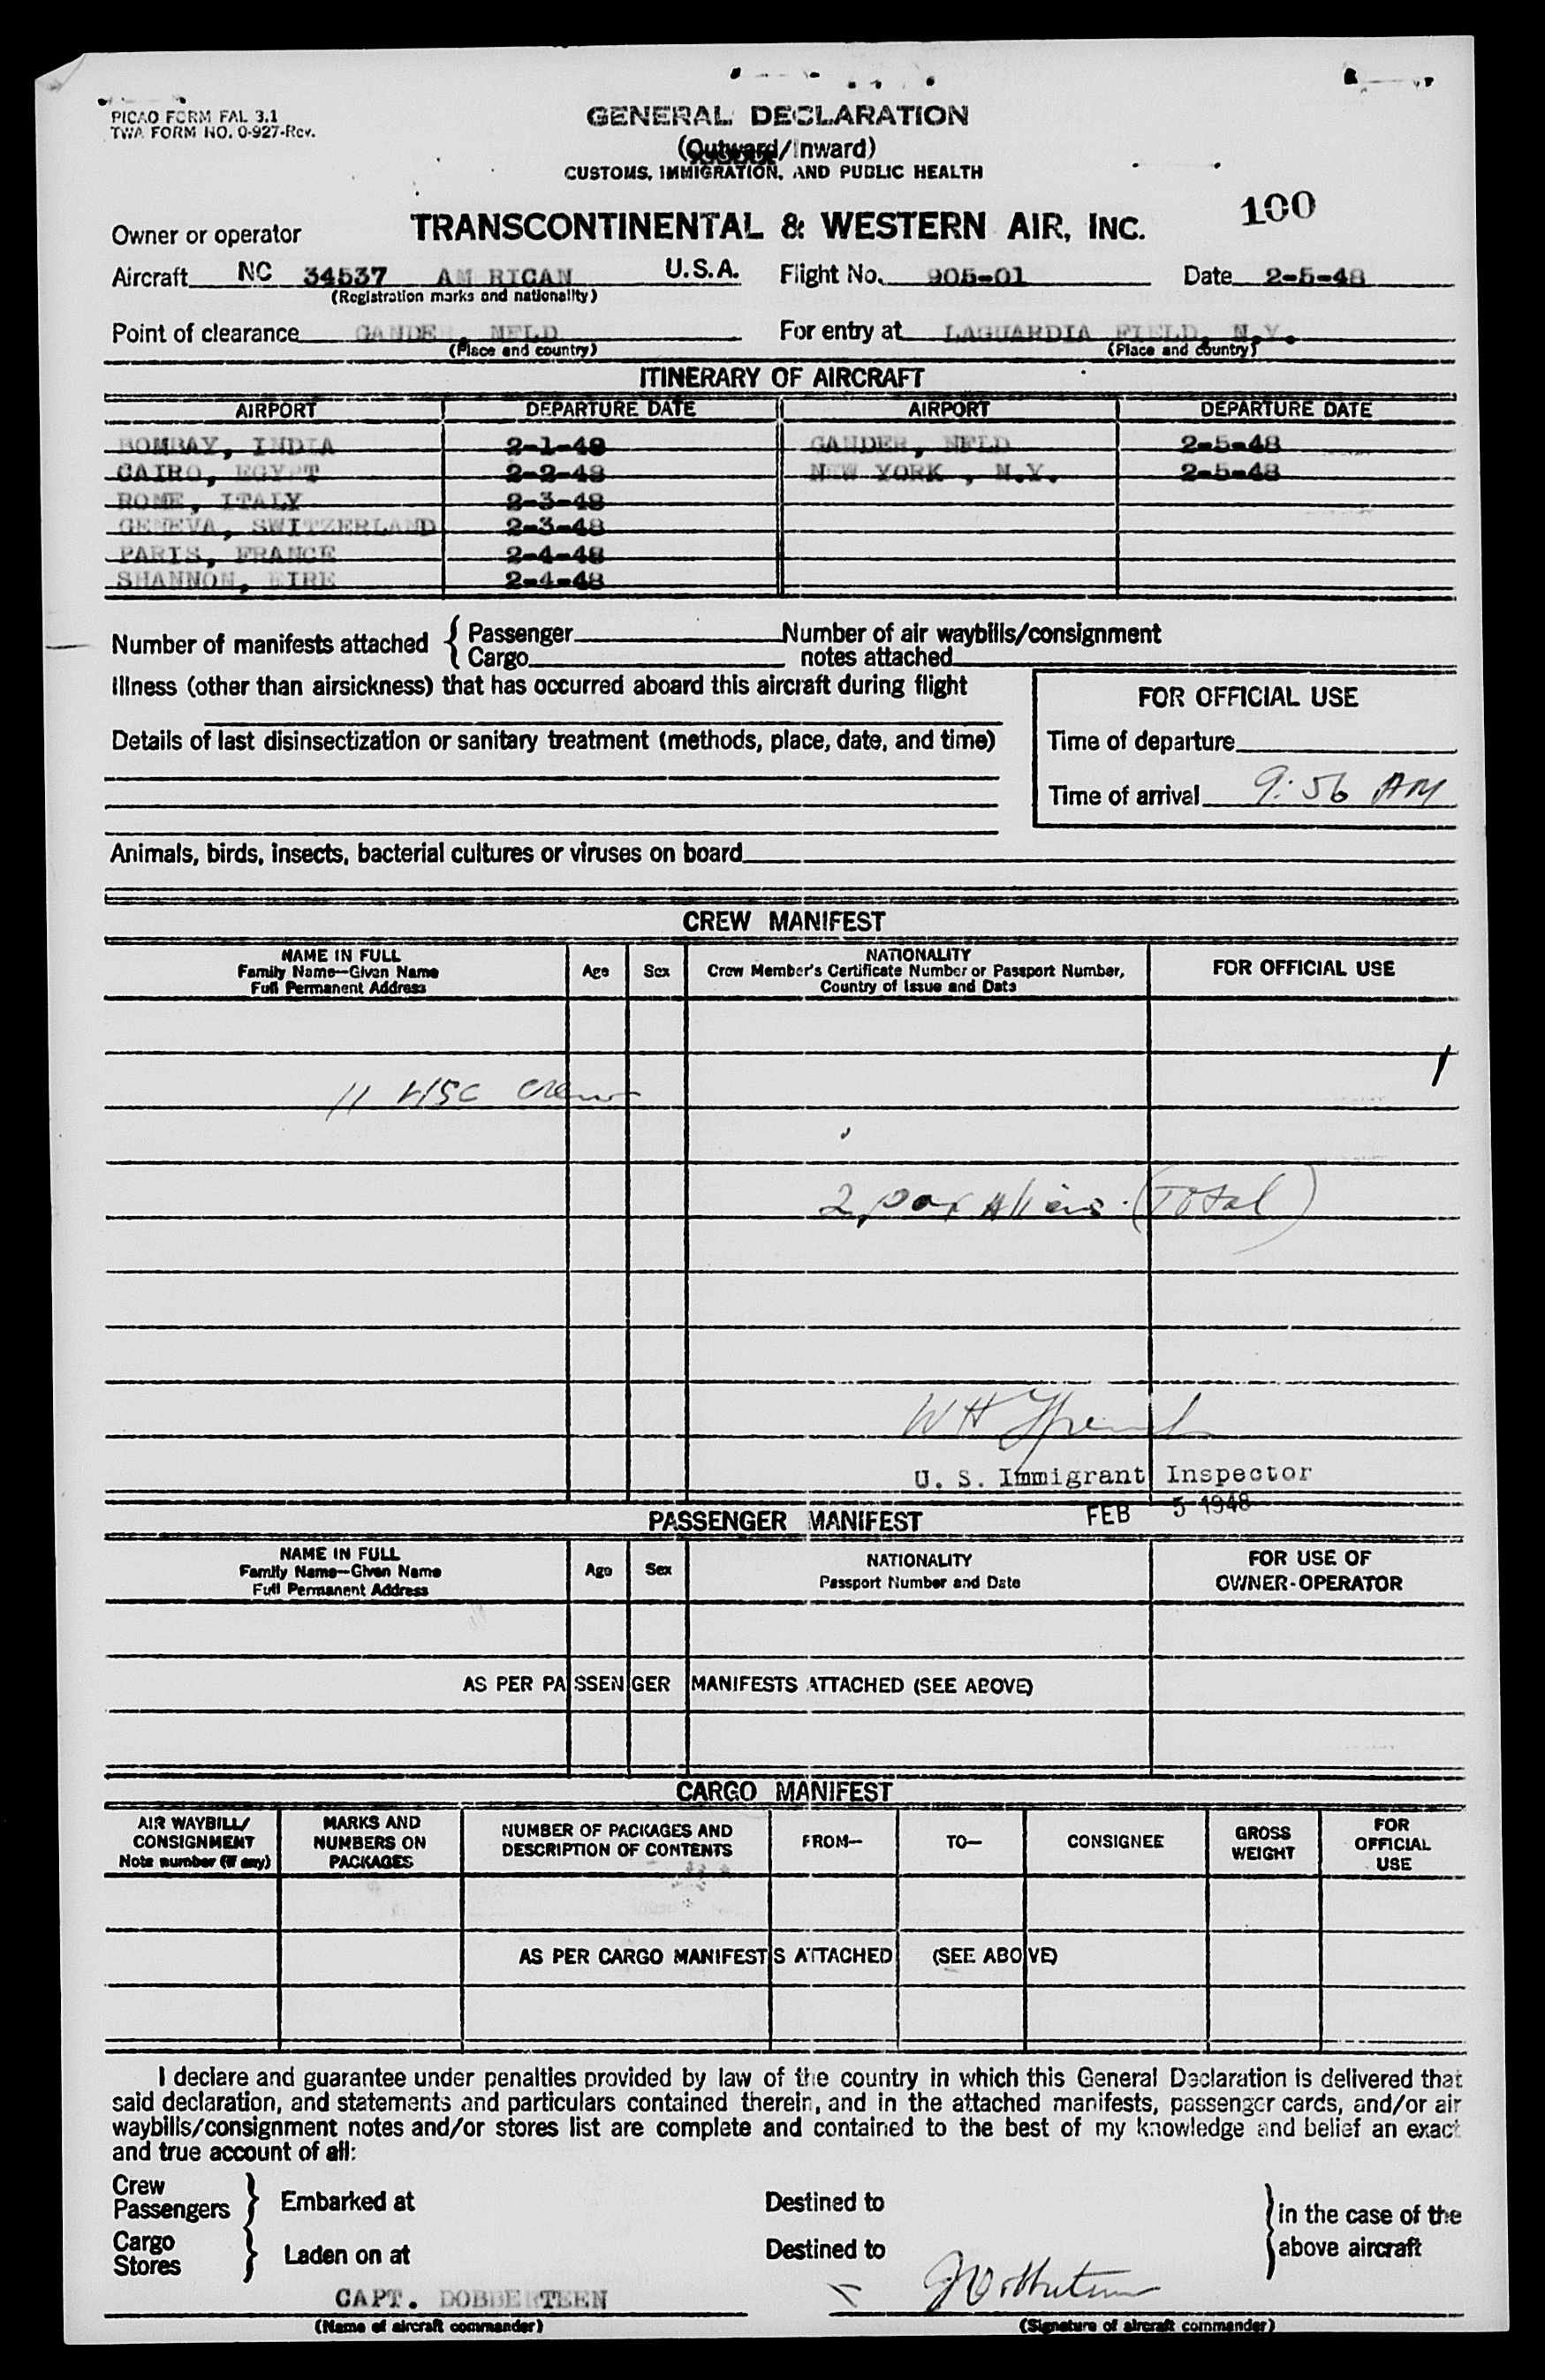 PICAO FORM FAL 3.1
TWA FORM NO. 0-927-Rev.
GENERAL DECLARATION
(Outward/Inward)
CUSTOMS, IMMIGRATION, AND PUBLIC HEALTH
100
Owner or operator TRANSCONTINENTAL & WESTERN AIR, INC.
Aircraft NC 34537 AM RICAN U.S.A. Flight No. 905-01 Date 2-5-48
(Registration marks and nationality)
Point of clearance GANDE , NFLD For entry at LAGUARDIA FIELD, N.Y.
(Place and country) (Place and country)
ITINERARY OF AIRCRAFT
AIRPORT DEPARTURE DATE AIRPORT DEPARTURE DATE
BOMBAY, INDIA 2-1-48 GANDER, NFLD 2-5-48
CAIRO, EGYPT 2-2-48 NEW YORK , N.Y. 2-5-48
ROME, ITALY 2-3-48
GENEVA, SWITZERLAND 2-3-48
PARIS, FRANCE 2-4-48
SHANNON, EIRE 2-4-48
Number of manifests attached { Passenger Number of air waybills/consignment
Cargo notes attached
Illness (other than airsickness) that has occurred aboard this aircraft during flight
FOR OFFICIAL USE
Details of last disinsectization or sanitary treatment (methods, place, date, and time)
Time of departure
Time of arrival 9:56 AM
Animals, birds, insects, bacterial cultures or viruses on board
CREW MANIFEST
NAME IN FULL
Family Name—Given Name
Full Permanent Address
Age Sex
NATIONALITY
Crew Member's Certificate Number or Passport Number,
Country of Issue and Date
FOR OFFICIAL USE
11 USC Crew
2 pax Aliens (Total)
W H
U. S. Immigrant Inspector
FEB 5 1948
PASSENGER MANIFEST
NAME IN FULL
Family Name—Given Name
Full Permanent Address
Age Sex
NATIONALITY
Passport Number and Date
FOR USE OF
OWNER-OPERATOR
AS PER PASSENGER MANIFESTS ATTACHED (SEE ABOVE)
CARGO MANIFEST
AIR WAYBILL/
CONSIGNMENT
Note number (if any)
MARKS AND
NUMBERS ON
PACKAGES
NUMBER OF PACKAGES AND
DESCRIPTION OF CONTENTS
FROM—
TO—
CONSIGNEE
GROSS
WEIGHT
FOR
OFFICIAL
USE
AS PER CARGO MANIFESTS ATTACHED (SEE ABOVE)
I declare and guarantee under penalties provided by law of the country in which this General Declaration is delivered that
said declaration, and statements and particulars contained therein, and in the attached manifests, passenger cards, and/or air
waybills/consignment notes and/or stores list are complete and contained to the best of my knowledge and belief an exact
and true account of all:
Crew
Passengers } Embarked at Destined to
Cargo
Stores } Laden on at Destined to
} in the case of the
above aircraft
CAPT. DOBBERTEEN
(Name of aircraft commander) (Signature of aircraft commander)